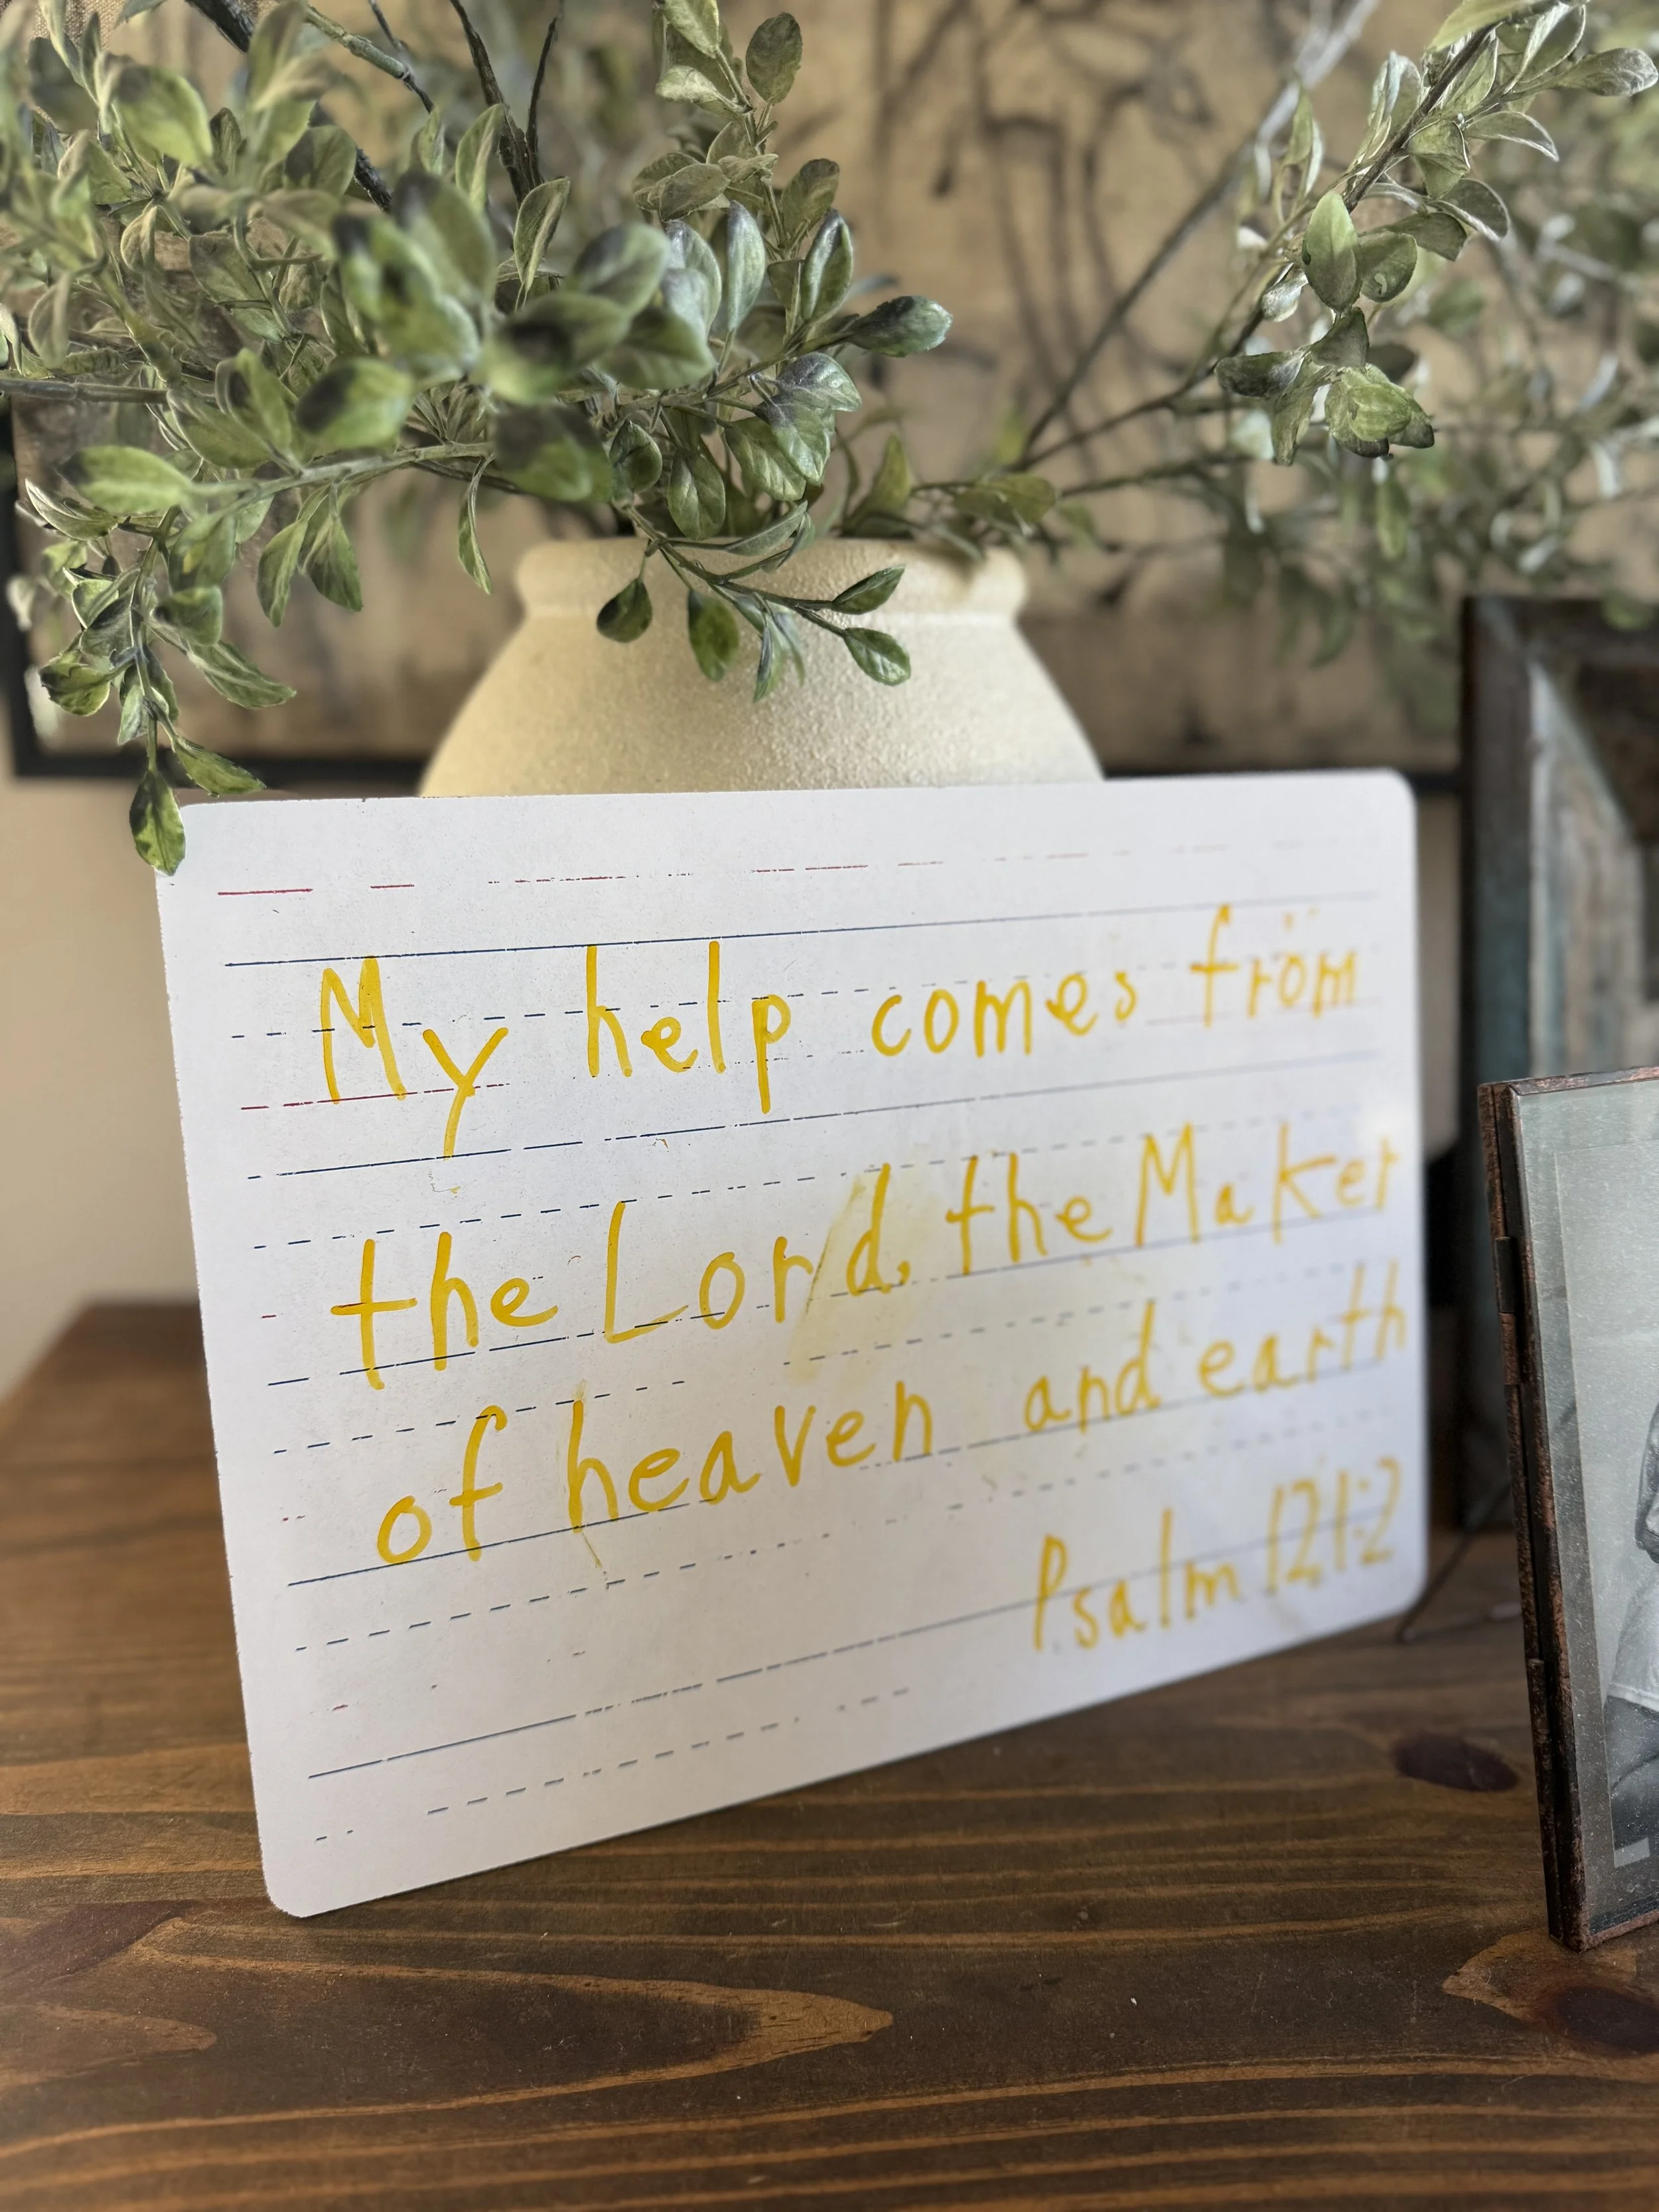 My help comes from
the Lord, the Maker
of heaven and earth
Psalm 121:2